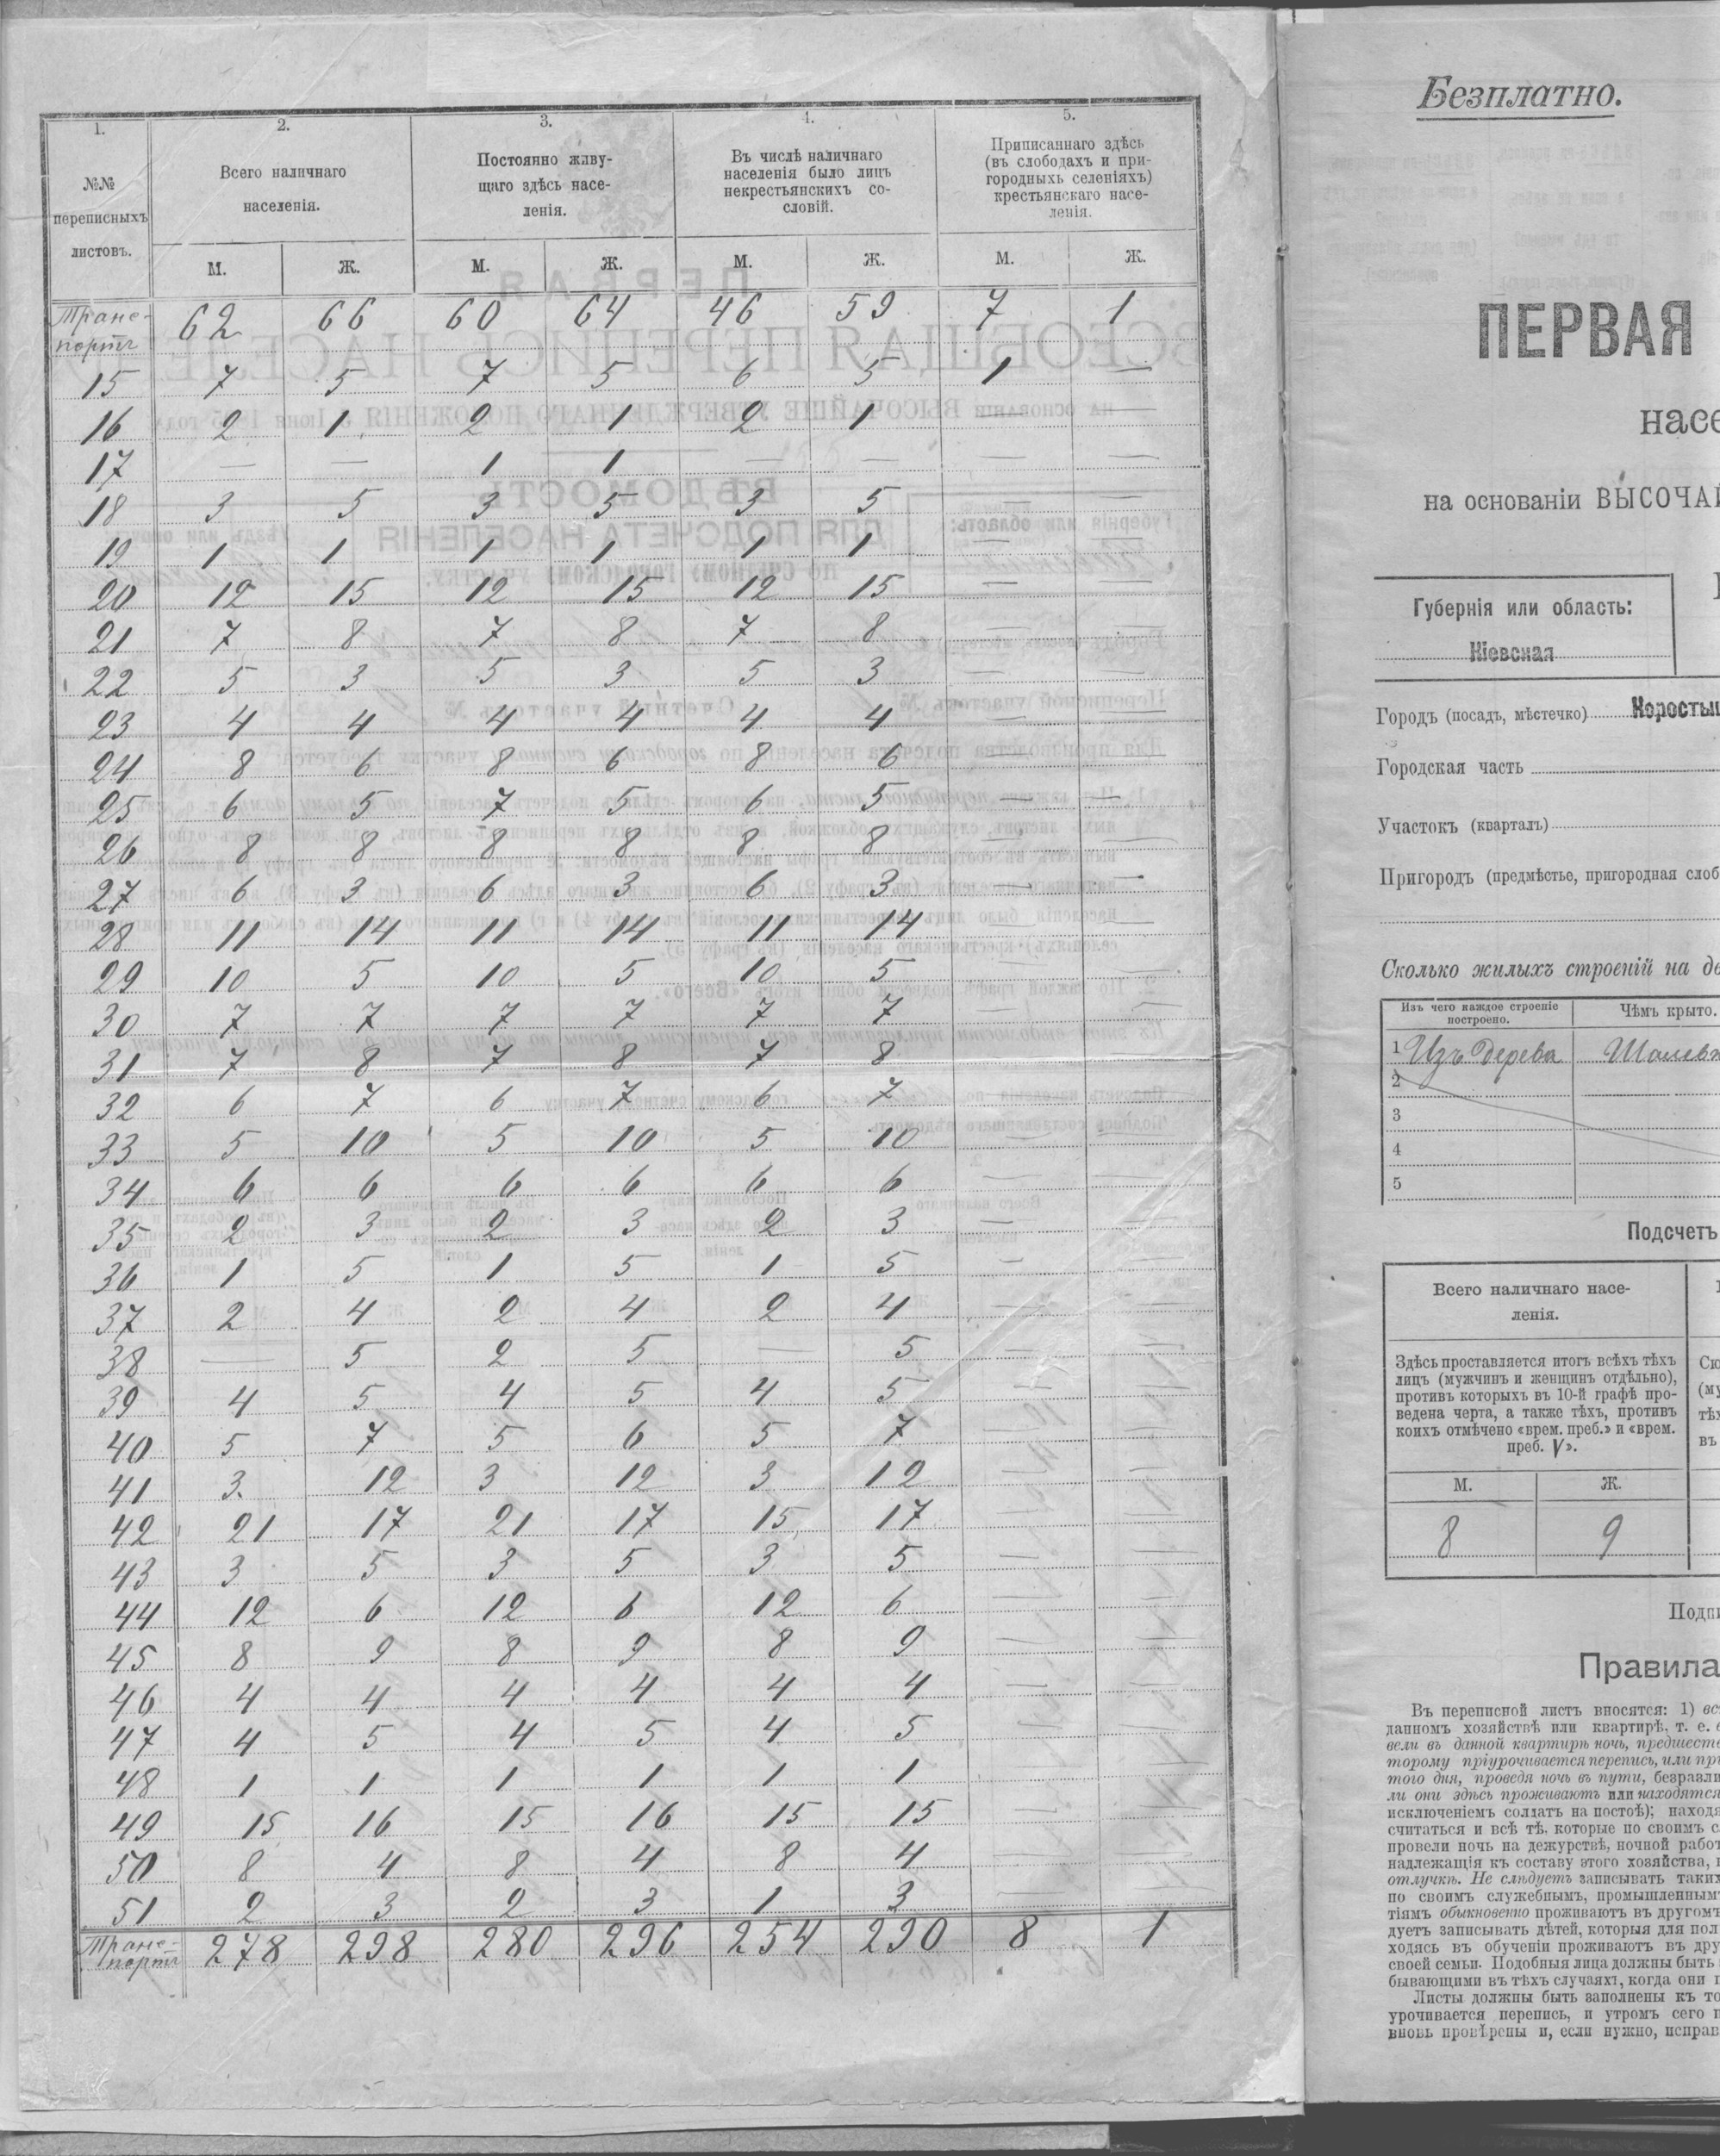 1. 2. 3. 4. 5.
№№ переписныхъ листовъ.
Всего наличнаго населенія.
Постоянно живущаго здѣсь населенія.
Въ числѣ наличнаго населенія было лицъ некрестьянскихъ сословій.
Приписаннаго здѣсь (въ слободахъ и пригородныхъ селеніяхъ) крестьянскаго населенія.
М. Ж. М. Ж. М. Ж. М. Ж.
Транспортъ 62 66 60 64 46 59 7 1
15 7 5 7 5 6 5 1 —
16 2 1 2 1 2 1 — —
17 — — 1 1 — — — —
18 3 5 3 5 3 5 — —
19 1 1 1 1 1 1 — —
20 12 15 12 15 12 15 — —
21 7 8 7 8 7 8 — —
22 5 3 5 3 5 3 — —
23 4 4 4 4 4 4 — —
24 8 6 8 6 8 6 — —
25 6 5 7 5 6 5 — —
26 8 8 8 8 8 8 — —
27 6 3 6 3 6 3 — —
28 11 14 11 14 11 14 — —
29 10 5 10 5 10 5 — —
30 7 7 7 7 7 7 — —
31 7 8 7 8 7 8 — —
32 6 7 6 7 6 7 — —
33 5 10 5 10 5 10 — —
34 6 6 6 6 6 6 — —
35 2 3 2 3 2 3 — —
36 1 5 1 5 1 5 — —
37 2 4 2 4 2 4 — —
38 — 5 2 5 — 5 — —
39 4 5 4 5 4 5 — —
40 5 7 5 6 5 7 — —
41 3 12 3 12 3 12 — —
42 21 17 21 17 15 17 — —
43 3 5 3 5 3 5 — —
44 12 6 12 6 12 6 — —
45 8 9 8 9 8 9 — —
46 4 4 4 4 4 4 — —
47 4 5 4 5 4 5 — —
48 1 1 1 1 1 1 — —
49 15 16 15 16 15 15 — —
50 8 4 8 4 8 4 — —
51 2 3 2 3 1 3 — —
Транспортъ 278 298 280 296 254 290 8 1
Безплатно.
ПЕРВАЯ
насе
на основаніи ВЫСОЧАЙ
Губернія или область:
Кіевская
Городъ (посадъ, мѣстечко) Коростыш
Городская часть
Участокъ (кварталъ)
Пригородъ (предмѣстье, пригородная слоб
Сколько жилыхъ строеній на де
Изъ чего каждое строеніе построено.
Чѣмъ крыто.
1 Изъ дерева
2
3
4
5
Подсчетъ
Всего наличнаго населенія.
Здѣсь проставляется итогъ всѣхъ тѣхъ
лицъ (мужчинъ и женщинъ отдѣльно),
противъ которыхъ въ 10-й графѣ про-
ведена черта, а также тѣхъ, противъ
коихъ отмѣчено «врем. преб.» и «врем.
преб. V».
Сю
(му
тѣх
въ
М. Ж.
8 9
Подпи
Правила
Въ переписной листъ вносятся: 1) вс
данномъ хозяйствѣ или квартирѣ, т. е.
вели въ данной квартирѣ ночь, предшест
торому пріурочивается перепись, или пр
того дня, проведя ночь въ пути, безразли
ли они здѣсь проживаютъ или находятся
исключеніемъ солдатъ на постоѣ); наход
считаться и всѣ тѣ, которые по своимъ с
провели ночь на дежурствѣ, ночной работ
надлежащія къ составу этого хозяйства,
отлучкѣ. Не слѣдуетъ записывать таких
по своимъ служебнымъ, промышленным
тіямъ обыкновенно проживаютъ въ другомъ
дуетъ записывать дѣтей, которыя для пол
ходясь въ обученіи проживаютъ въ дру
своей семьи. Подобныя лица должны быть
бывающими въ тѣхъ случаяхъ, когда они
Листы должны быть заполнены къ то
урочивается перепись, и утромъ сего
вновь провѣрены и, если нужно, исправ